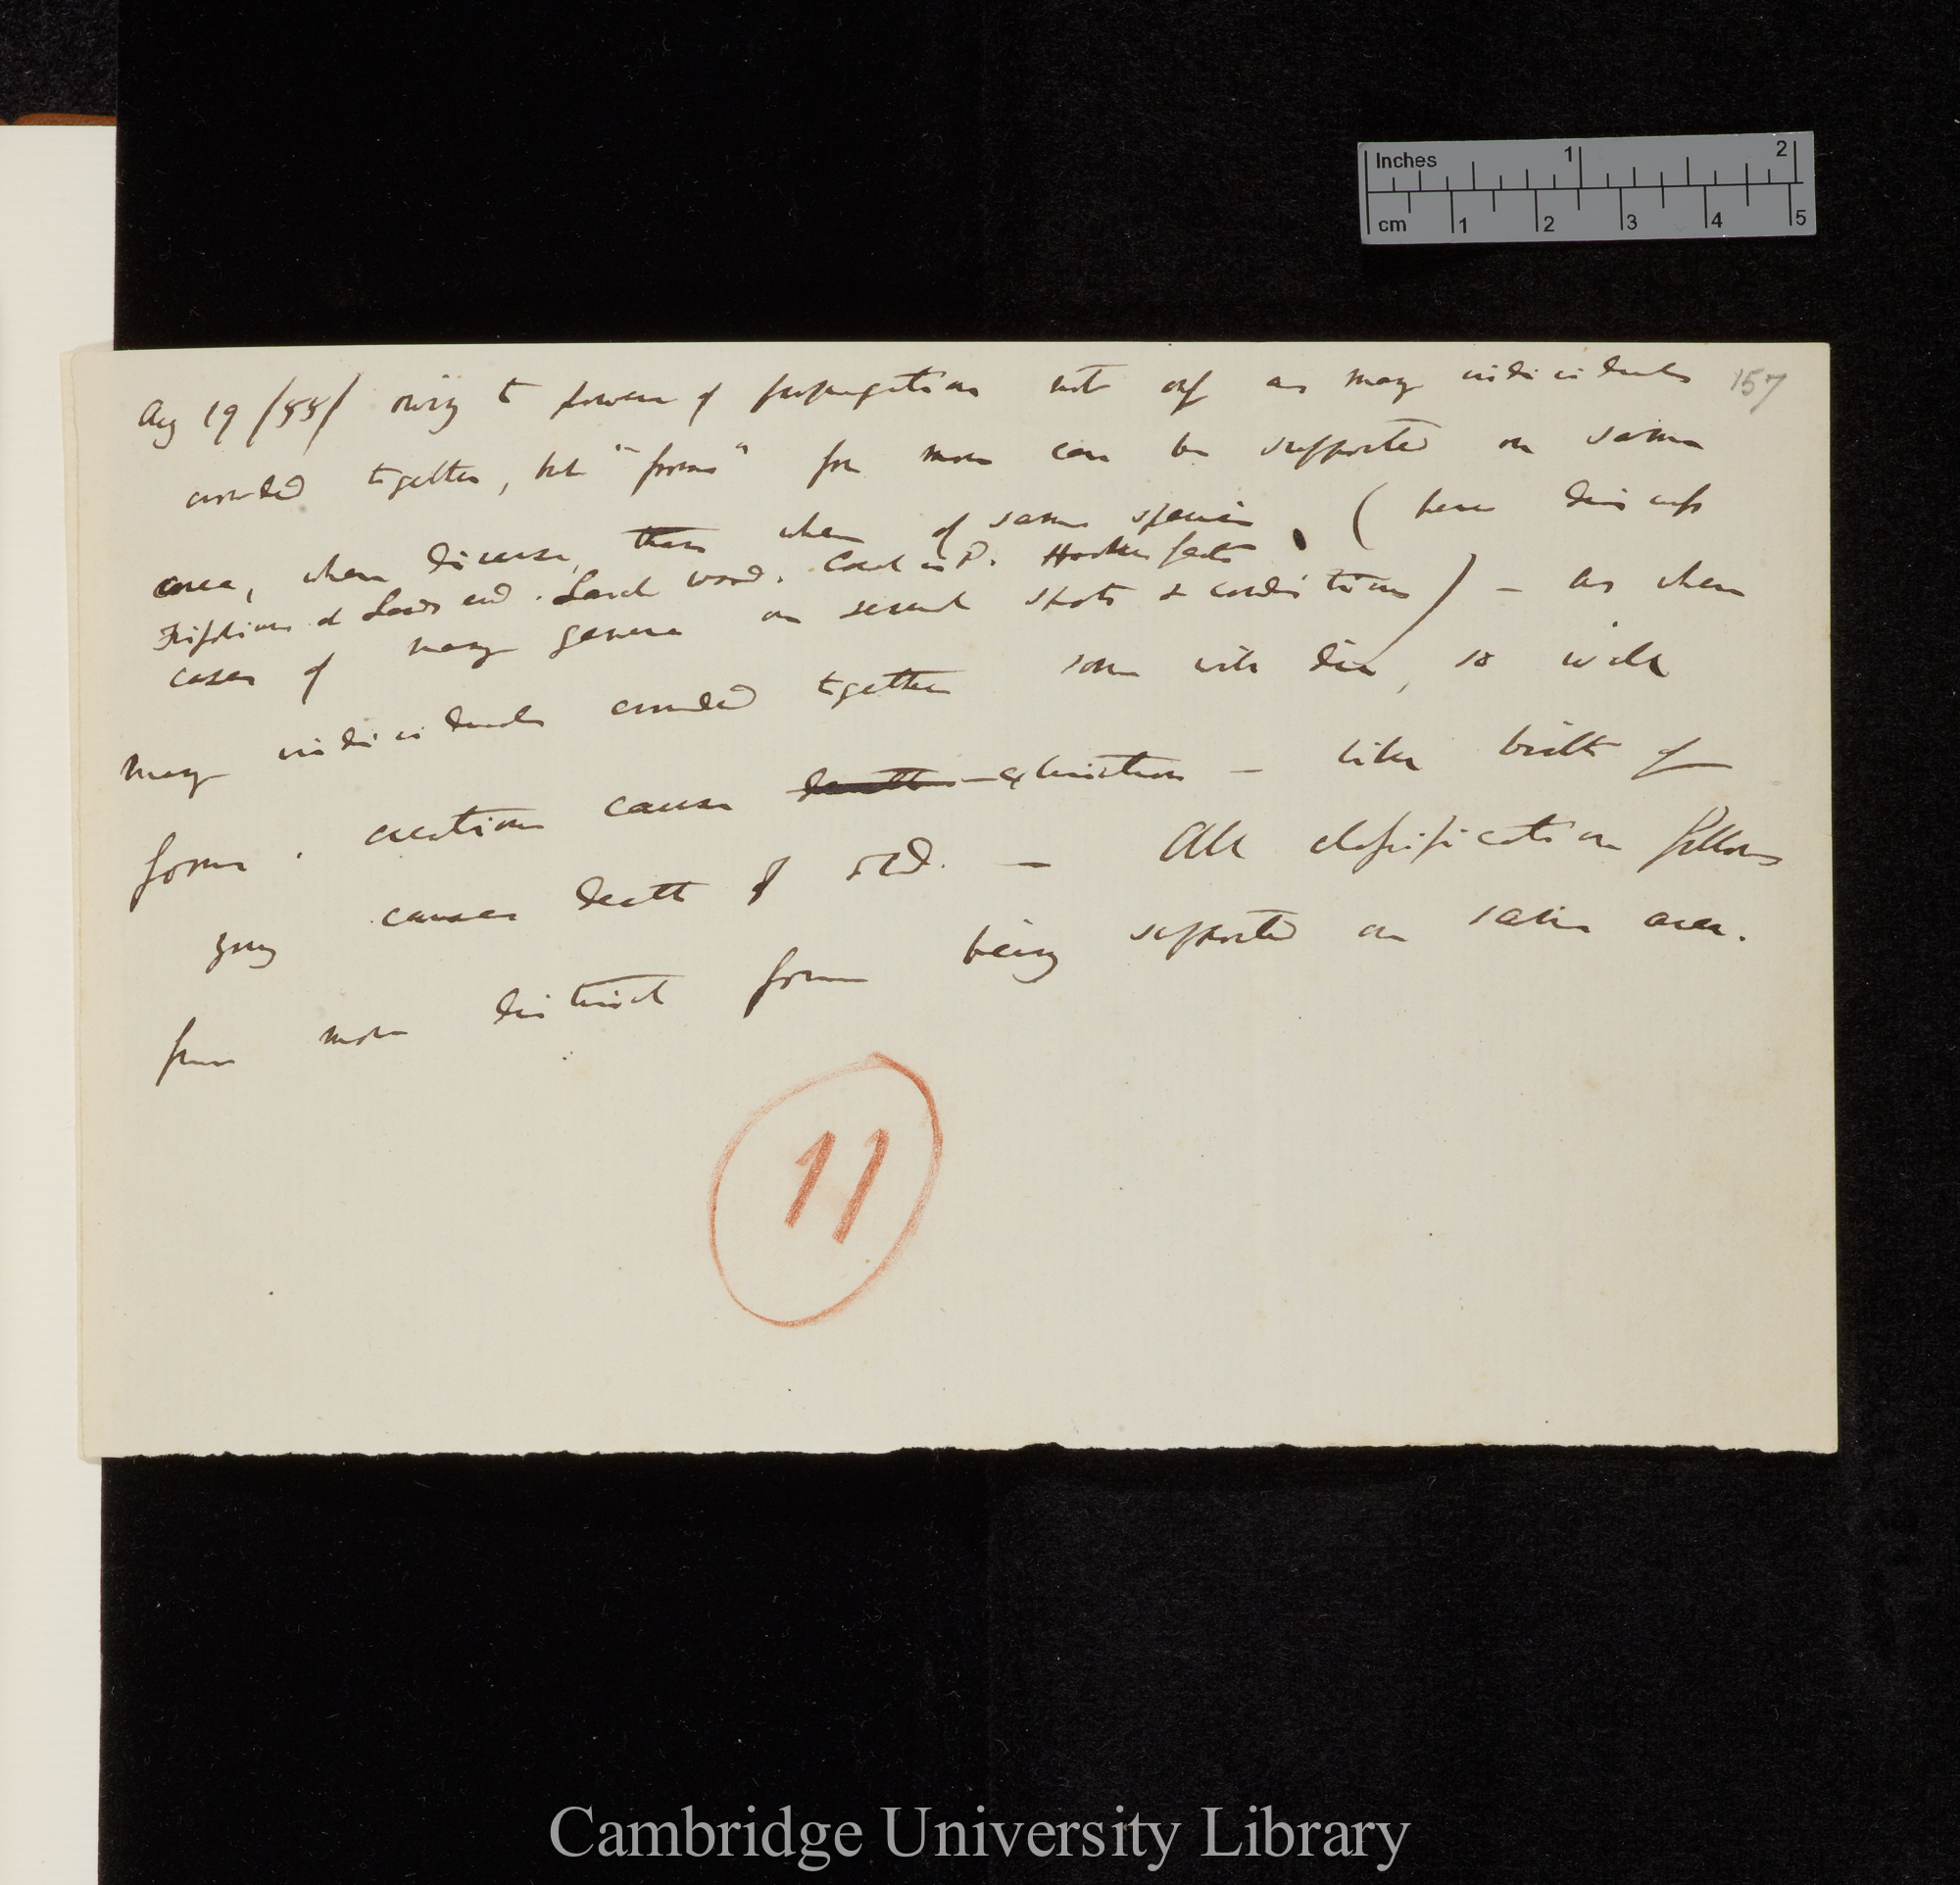 Inches 1 2
cm 1 2 3 4 5
157
Aug 19 /55/ owing to power of propagation not only as many individuals
crowded together, but "forms" for more can be supported on same
area, when diverse, than when of same species (here discuss
Trifolium at Lands end. Sand wood. Hooker facts
cases of many genera on several spots & conditions) – as when
many individuals crowded together some will die, so will
forms. creation cause death extinction – like birth of
young causes death of old. – All classification follows
from more distinct forms being supported on same area.
11
Cambridge University Library